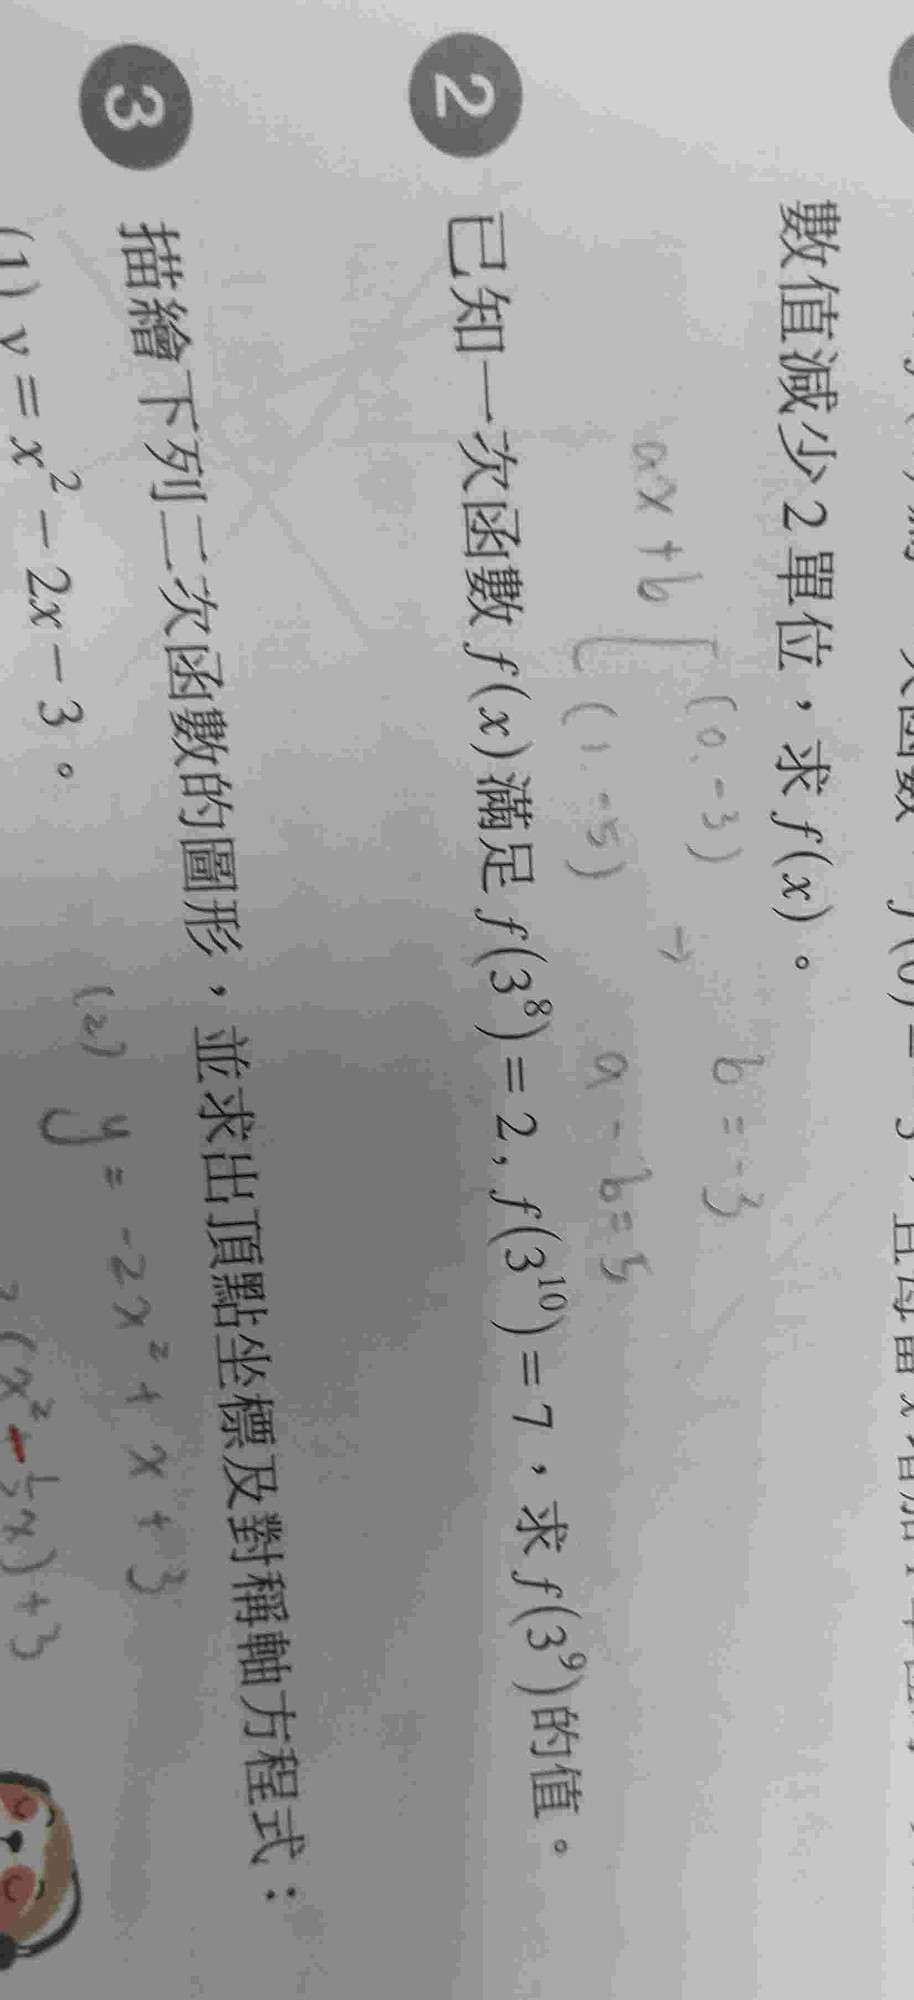 數值減少2單位，求f(x)。
(0, -3) → b = -3
ax + b
(1, -5) a - b = 5
2 已知一次函數f(x)滿足f(3⁸)=2, f(3¹⁰)=7，求f(3⁹)的值。
3 描繪下列二次函數的圖形，並求出頂點坐標及對稱軸方程式：
(1) y = x² - 2x - 3。
(2) y = -2x² + x + 3